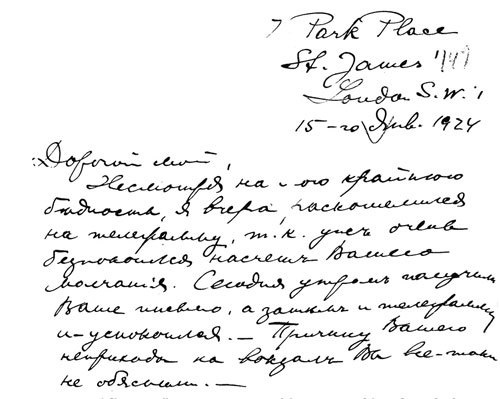 7 Park Place
St. James'
London S.W. 1
15-го Янв. 1924
Дорогой мой,
Несмотря на мою крайнюю
бѣдность, я вчера, раскошелился
на телеграмму, т.к. ужъ очень
безпокоился насчетъ Вашего
молчанія. Сегодня утромъ получилъ
Ваше письмо, а затѣмъ и телеграмму
и - успокоился. — Причину Вашего
неприхода на вокзалъ Вы все-таки
не обяснили. —